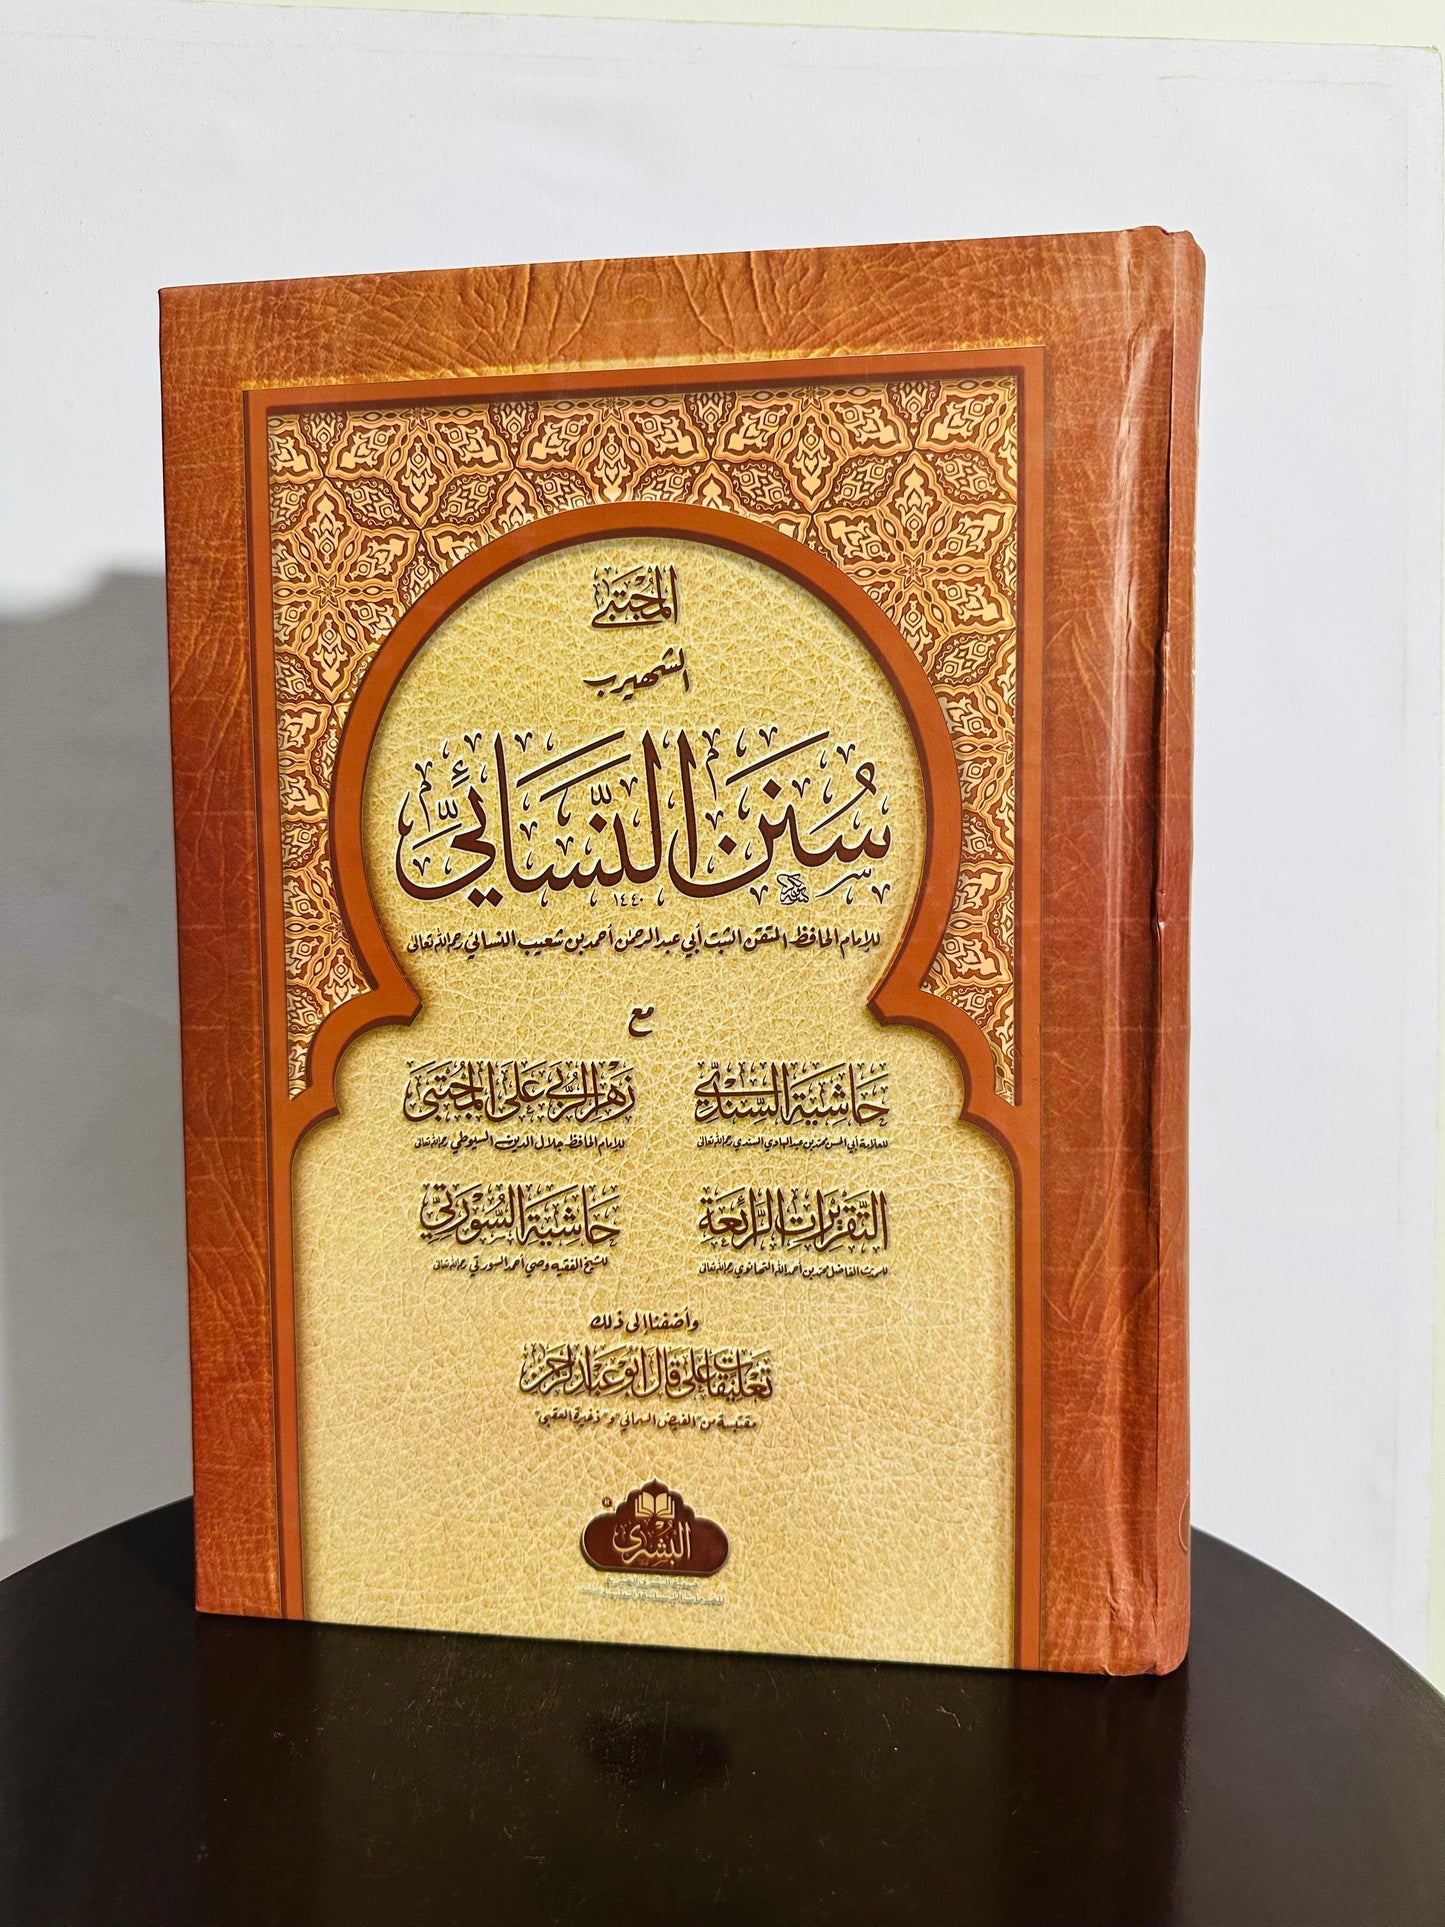 المجتبى
الشهير ب
سُنَن النَّسَائِيّ
١٤٤٠
للإمام الحافظ المتقن الثبت أبي عبد الرحمن أحمد بن شعيب النسائي رحمه الله تعالى
مع
حَاشِيَة السِّنْدِيّ
للعلامة أبي الحسن محمد بن عبد الهادي السندي رحمه الله تعالى
زهر الرُّبى عَلَى المُجْتَبَى
للإمام الحافظ جلال الدين السيوطي رحمه الله تعالى
التَّقْرِيرَات الرَّائِعَة
للمحدث الفاضل محمد بن أحمد الله التهانوي رحمه الله تعالى
حَاشِيَة السُّوْرَتِيّ
للشيخ الفقيه وصي أحمد السورتي رحمه الله تعالى
وأضفنا إلى ذلك
تعليقات على قال أبو عبد الرحمن
مقتبسة من "الفيض السمائي" و"ذخيرة العقبى"
البُشرى
®